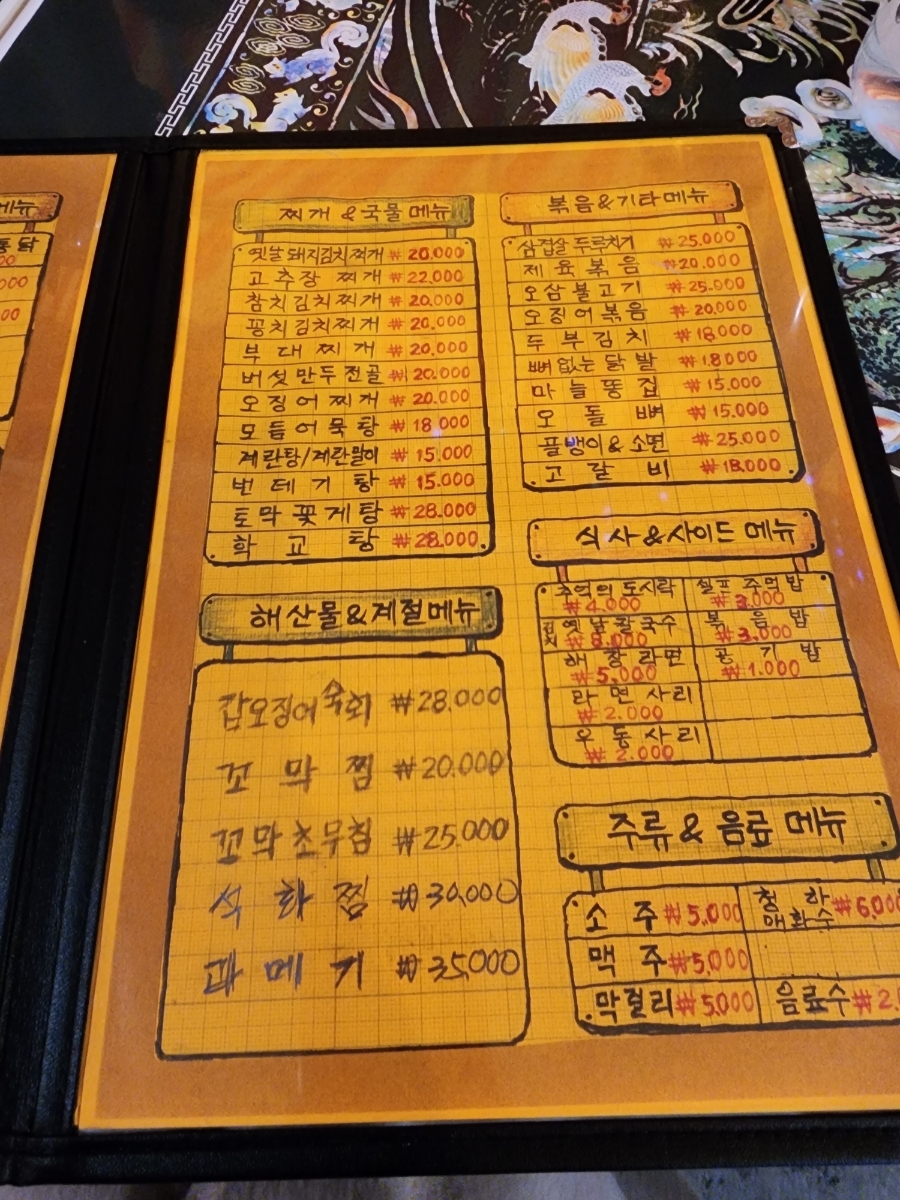 메뉴
통닭
00
000
00
찌개 &국물메뉴
옛날돼지김치찌개 ₩ 20.000
고추장 찌개 ₩ 22.000
참치김치찌개 ₩ 20.000
꽁치김치찌개 ₩ 20.000
부대찌개 ₩ 20.000
버섯만두전골 ₩ 20.000
오징어찌개 ₩ 20.000
모듬어묵탕 ₩ 18.000
계란탕/계란말이 ₩ 15.000
번데기탕 ₩ 15.000
토막꽃게탕 ₩ 28.000
학교탕 ₩ 28.000
해산물&계절메뉴
갑오징어숙회 ₩28.000
꼬막찜 ₩20.000
꼬막초무침 ₩25.000
석화찜 ₩30,000
과메기 ₩35,000
볶음&기타메뉴
삼겹살 두루치기 ₩25.000
제육볶음 ₩20.000
오삼불고기 ₩25.000
오징어볶음 ₩20.000
두부김치 ₩18,000
뼈없는닭발 ₩18000
마늘똥집 ₩15.000
오돌뼈 ₩15.000
골뱅이&소면 ₩25.000
고갈비 ₩18.000
식사&사이드 메뉴
추억의 도시락 ₩4.000
셀프주먹밥 ₩3.000
김치 옛날칼국수 ₩8.000
볶음밥 ₩3,000
해장라면 ₩5.000
공기밥 ₩1.000
라면사리 ₩2.000
우동사리 ₩2.000
주류& 음료 메뉴
소주 ₩5.000
청하 매화수 ₩6,000
맥주 ₩5,000
막걸리 ₩5.000
음료수 ₩2.